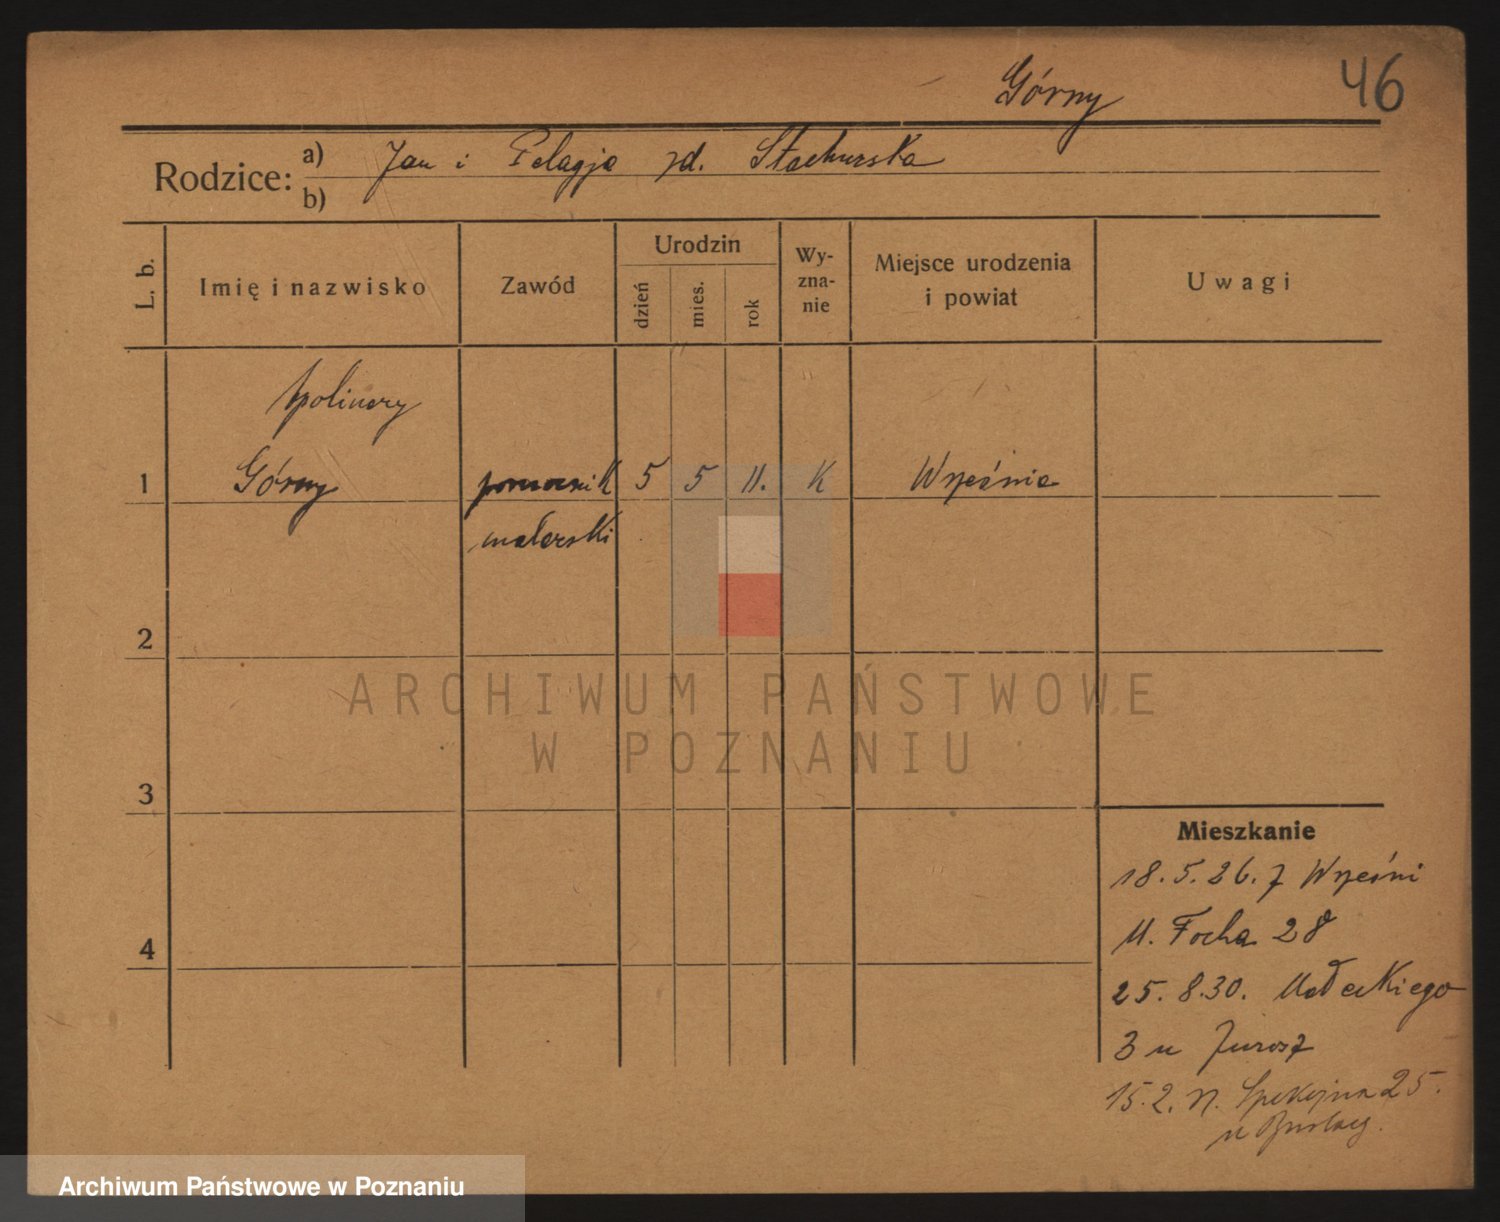 Górny
46
Rodzice: a) Jan i Pelagja zd. Stachurska
b)
L. b.
Imię i nazwisko
Zawód
Urodzin
dzień
mies.
rok
Wy-
zna-
nie
Miejsce urodzenia
i powiat
Uwagi
Apolinary
1 Górny pomocnik 5 5 11. K Września
malarski
2
3
4
ARCHIWUM PAŃSTWOWE
W POZNANIU
Mieszkanie
18. 5. 26. z Wrześni
Focha 28
25. 8. 30. Małeckiego
3 u
15. 2. Spokojna 25.
u
Archiwum Państwowe w Poznaniu